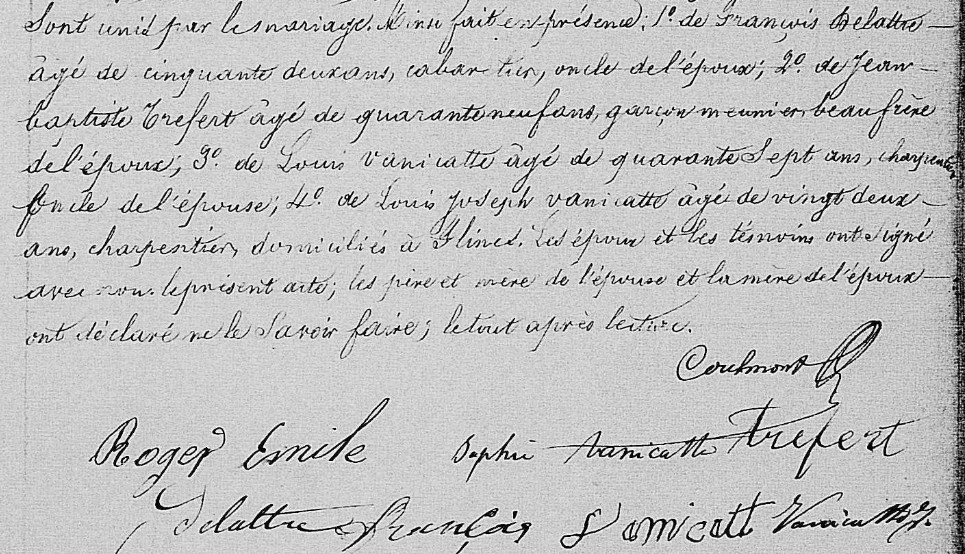 sont unis par le mariage. Ainsi fait en présence: 1º. de François Delattre
âgé de cinquante deux ans, cabaretier, oncle de l'époux; 2º. de Jean
baptiste Trefert âgé de quarante neuf ans, garçon meunier, beau frère
de l'époux; 3º. de Louis Vanicatte âgé de quarante Sept ans, charpentier
Oncle de l'épouse; 4º. de Louis Joseph Vanicatte âgé de vingt deux
ans, charpentier, domiciliés à Flines. Les époux et les témoins ont Signé
avec nous le présent acte; les père et mère de l'épouse et la mère de l'époux
ont déclaré ne le Savoir faire; le tout après lecture.
Coulmont
Roger Emile Sophie Vanicatte Trefert
Delattre François Vanicatt Vanicatte J.